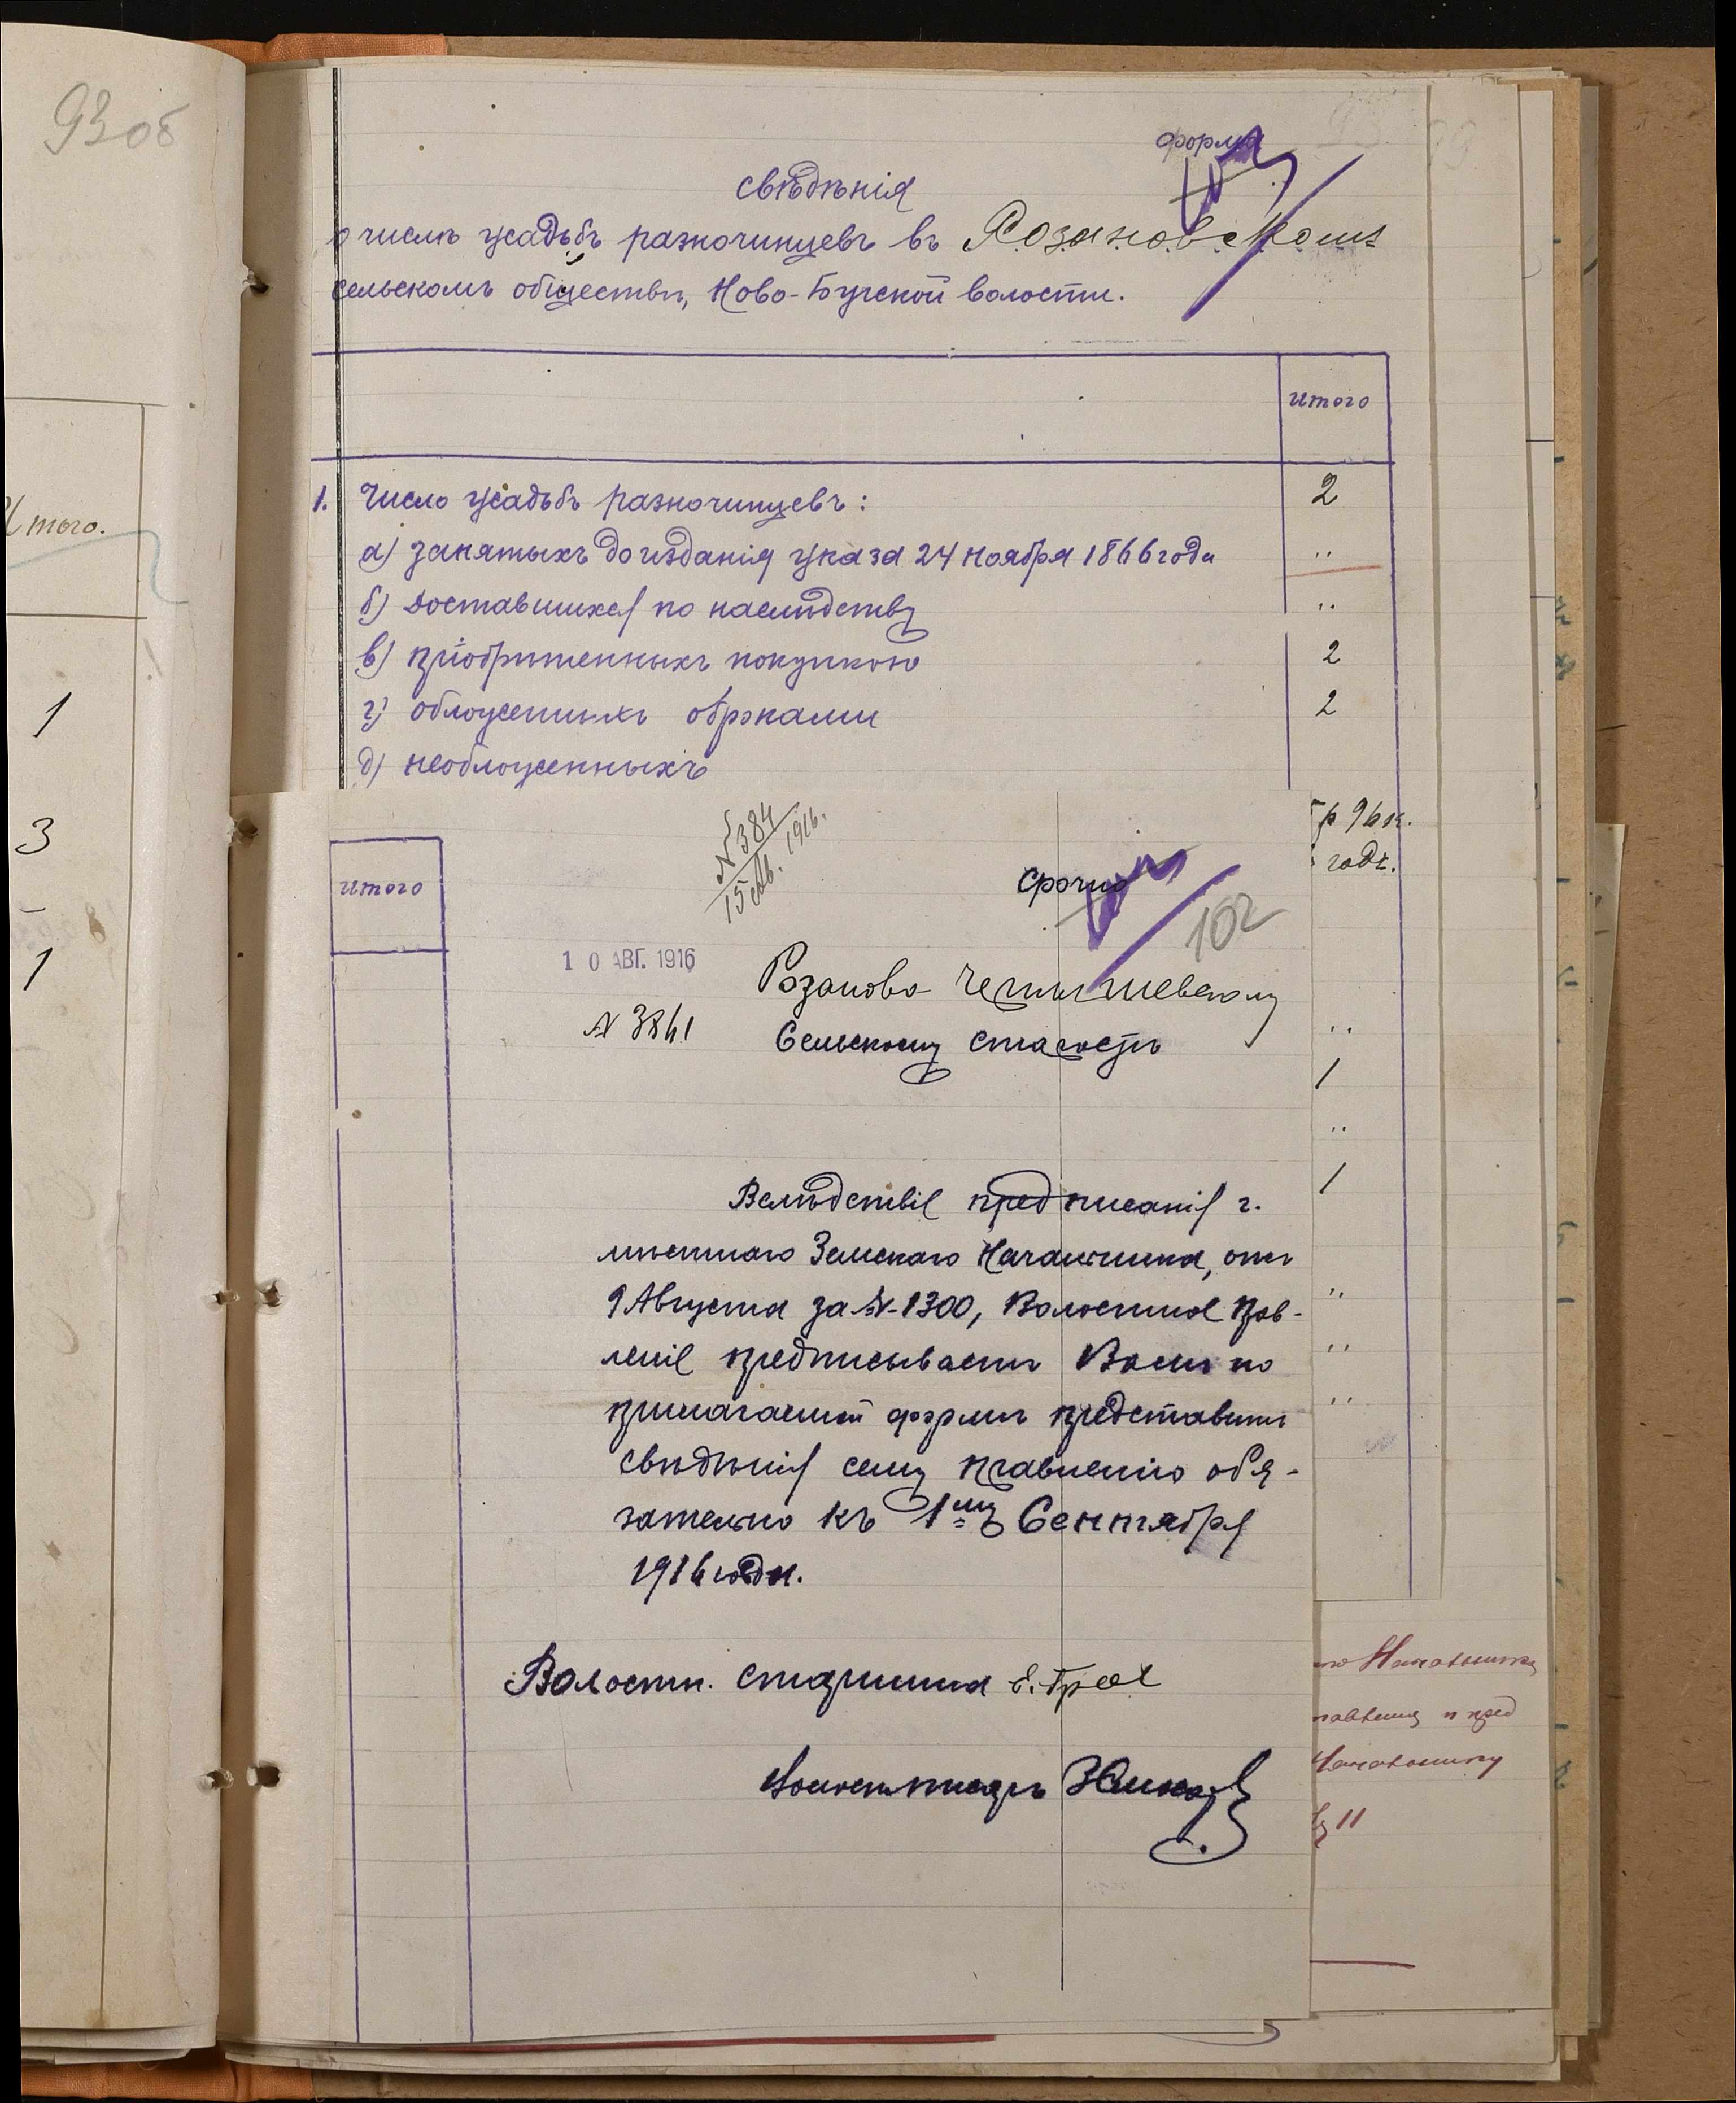 93об
Итого.
1
3
1
форма
свѣдѣнія
о числѣ усадьбъ разночинцевъ въ Розановскомъ
сельскомъ обществѣ, Ново-Бугской волости.
итого
1. Число усадьбъ разночинцевъ: 2
а) занятыхъ до изданія указа 24 ноября 1866 года "
б) доставшихся по наслѣдству "
в) пріобрѣтенныхъ покупкою 2
г) обложенныхъ оброками 2
д) необложенныхъ
р 96 к.
годъ.
итого
№ 384
15 Ав. 1916.
срочно
102
10 АВГ. 1916
№ 3841
Розаново-
Сельскому старостѣ
Вслѣдствіе предписанія г.
мѣстнаго Земскаго Начальника, отъ
9 Августа за №-1300, Волостное прав-
леніе предписываетъ Вамъ по
прилагаемой формѣ представить
свѣдѣнія сему правленію обя-
зательно къ 1му Сентября
1916 года.
Волостн. старшина
Волостн. писарь
"
1
"
1
"
"
"
Начальника
Начальнику
11